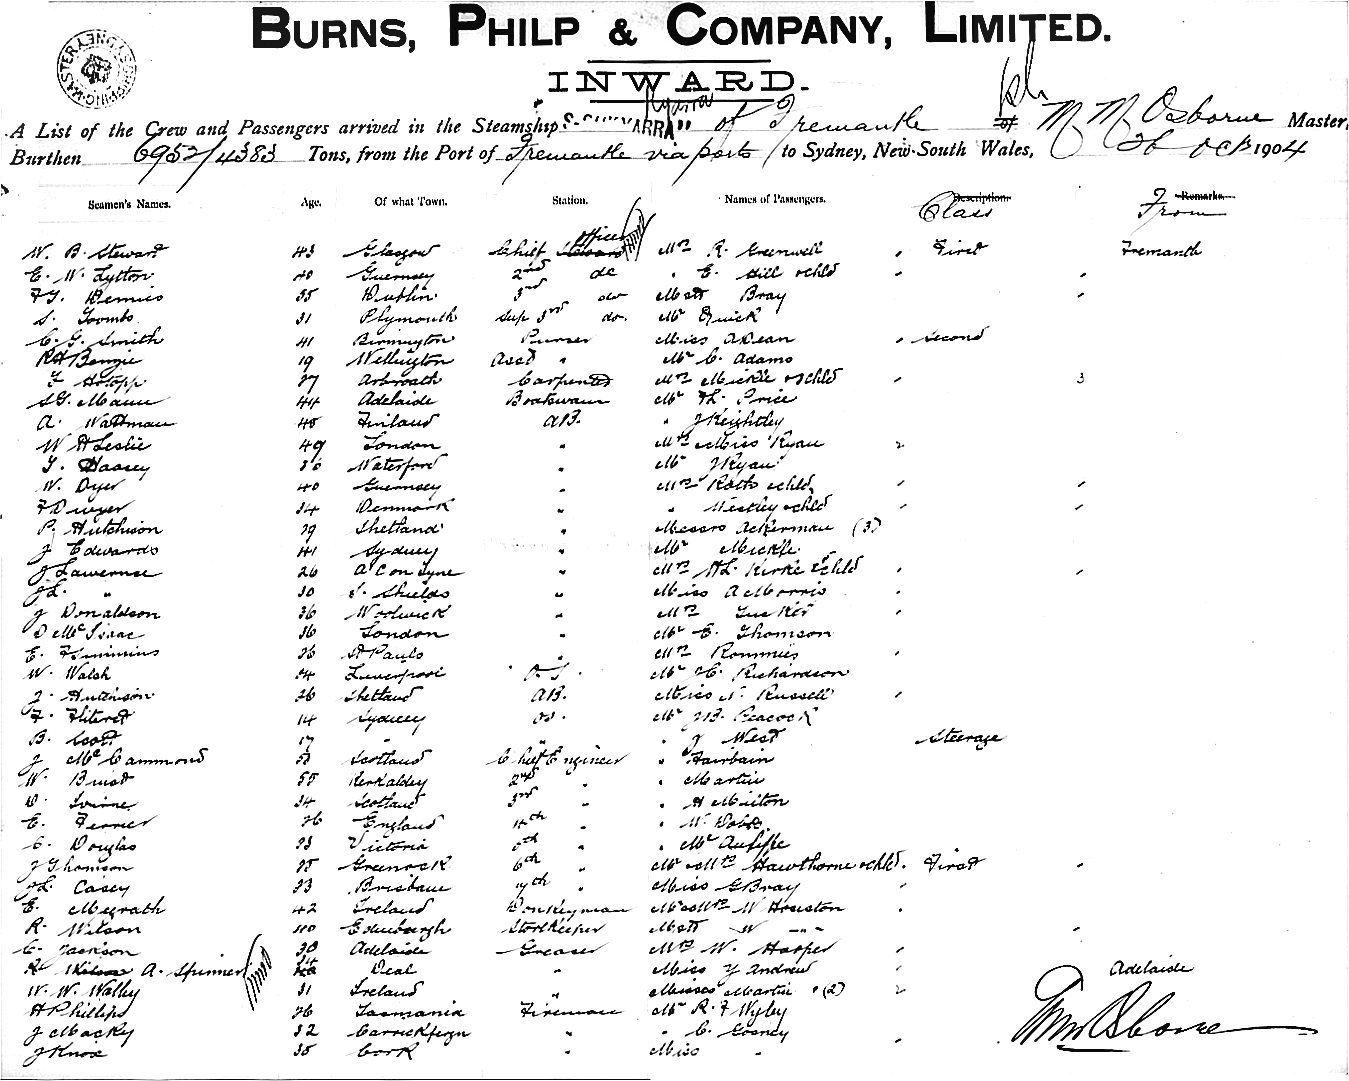 BURNS, PHILP & COMPANY, LIMITED.
INWARD.
A List of the Crew and Passengers arrived in the Steamship of Fremantle of M M Osborne Master,
Burthen 6952/4383 Tons, from the Port of Fremantle via ports to Sydney, New South Wales, 26 Oct 1904
Seamen's Names. Age. Of what Town. Station. Names of Passengers. Description. Class Remarks. From
W. B. Steward 43 Glasgow Chief Steward Officer Mrs R. Greenwell First Fremantle
E. W. Lytton 40 Guernsey 2nd do " E. Hill & chld
35 Dublin 3rd do Mast Bray
S. Toombs 31 Plymouth Sup 3rd do. Mr Quick
C. G. Smith 41 Purser Miss A Dean Second
19 Wellington Asst " Mr C. Adams
27 Arbroath Carpenter Mrs Mickle & chld 3
44 Adelaide Boatswain Mr Price
A. Wattman 45 Finland AB. " J Keightley
W H Leslie 49 London " Mrs & Miss Ryan 2
T. Hassey 36 Waterford " Mr J Ryan
W. Dyer 40 Guernsey " Mrs Roth & chld
F Dwyer 34 Denmark " " Westley & chld
P. Hutchison 29 Shetland " Messrs Ackerman (3)
J Edwards 41 Sydney " Mr Mickle
J Lawernce 26 " Mrs H.L. Kirke & chld
J L. " 30 S. Shields " Miss A Morris
J Donaldson 36 Woolwich " Mrs Tucker
D McIsaac 36 London " Mr E. Thomson
E. Flimmins 26 St Pauls " Mrs Rommies
W. Walsh 24 Liverpool O.S. Mr Richardson
J. Hutchison 26 Shetland AB. Miss N. Russell
14 Sydney OS. Mr J.B. Peacock
B. Scott 17 " " " J West Steerage
J McCammond 53 Scotland Chief Engineer " Fairbain
W. Buist 55 Kerkaldey 2nd " " Martin
D. Irvine 34 Scotland 3rd " " H Milton
E. Ferrier 26 England 4th " " W.
C. Douglas 23 Victoria 5th " " Mr
J Thomson 25 Greenock 6th " Mr & Mrs Hawthorne & chld. First
J L. Casey 23 Brisbane 7th " Miss G Bray
E. Megrath 42 Ireland Donkeyman Mr & Mrs W Houston
R. Wilson 40 Edinburgh Storekeeper Mast W "
C. Jackson 30 Adelaide Greaser Mrs W. Harper
R Wilson A. Spinner 24 Deal " Miss Y Andrew Adelaide
W. W. Walley 31 Ireland " Misses Martin (2) 2
H Phillips 26 Tasmania Fireman Mr R. F Wyley
J Macky 32 Carrickfergn " " C. Gosney
J Knox 35 Cork " Miss "